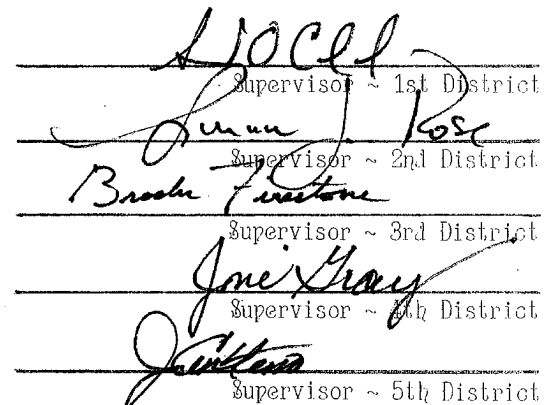 Supervisor ~ 1st District
Rose
Supervisor ~ 2nd District
Brooks Firestone
Supervisor ~ 3rd District
Joni Gray
Supervisor ~ 4th District
Supervisor ~ 5th District